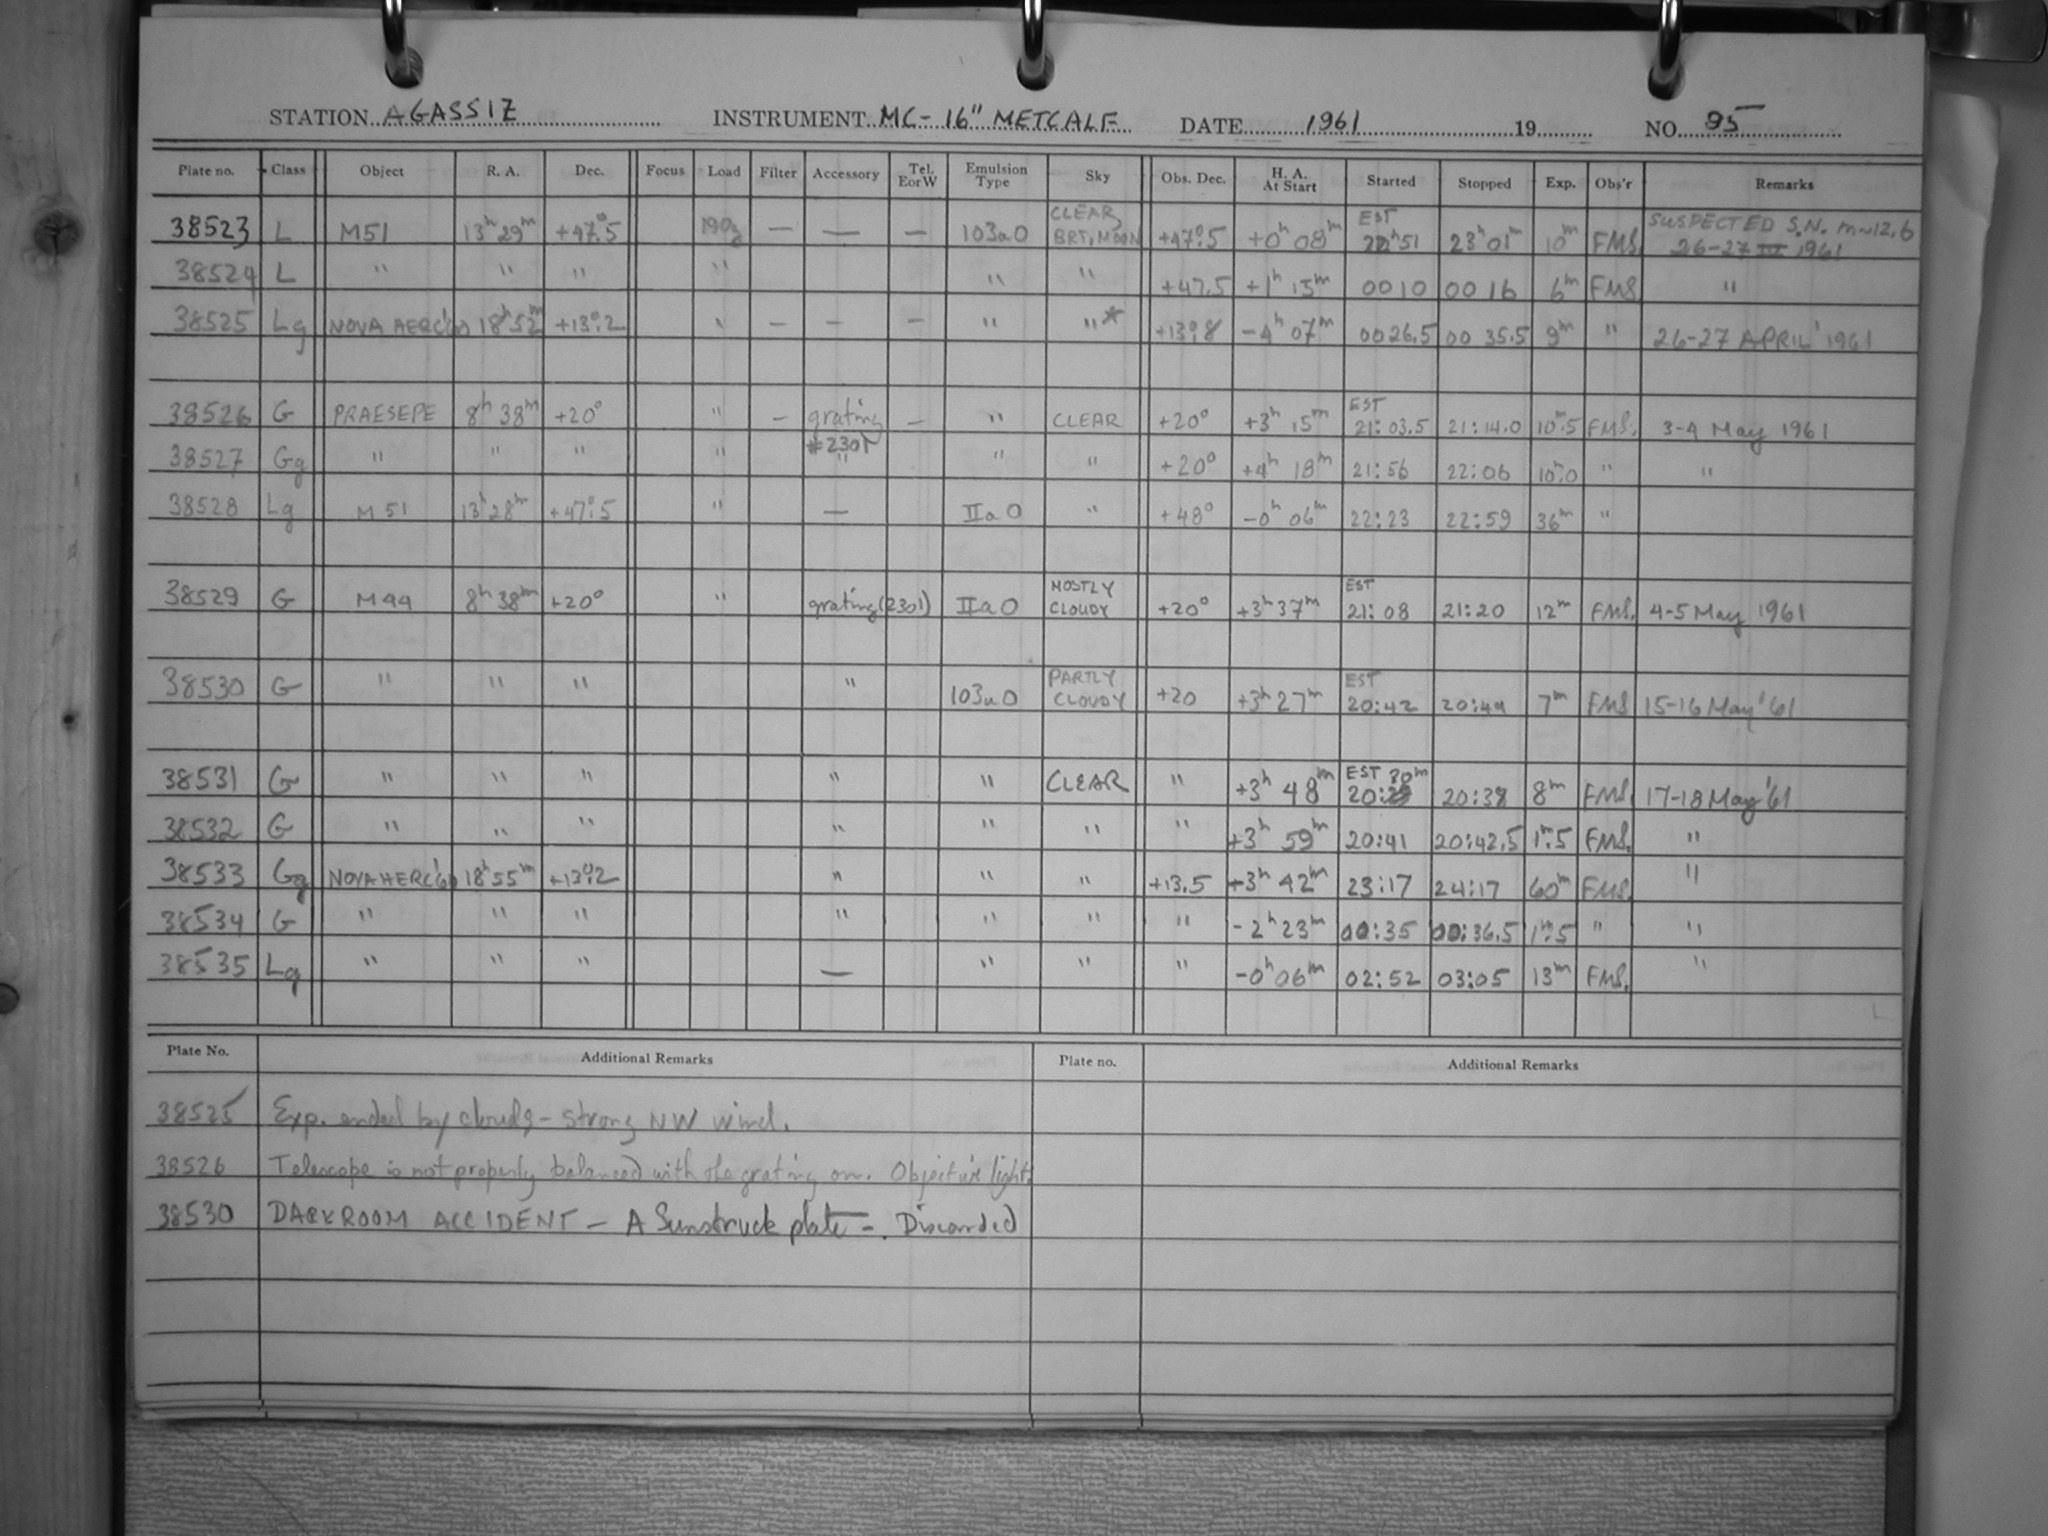 STATION AGASSIZ INSTRUMENT MC- 16" METCALF DATE 1961 19 NO. 95
Plate no. Class Object R. A. Dec. Focus Load Filter Accessory Tel. E or W Emulsion Type Sky Obs. Dec. H. A. At Start Started Stopped Exp. Obs'r Remarks
38523 L M51 13h 29m +47°.5 — — — 103aO CLEAR, BRT, MOON +47°.5 +0h 08m EST 22h51 23h 01m 10m FMS. SUSPECTED S.N. m~12.6 26-27 IV 1961
38524 L " " " " " " +47.5 +1h 15m 0010 00 16 6m FMS "
38525 Lg NOVA HERC 18h 52m +13°.2 " — — — " "* +13°.8 -4h 07m 0026.5 00 35.5 9m " 26-27 APRIL 1961
38526 G PRAESEPE 8h 38m +20° " — grating #2301 — " CLEAR +20° +3h 15m EST 21:03.5 21:14.0 10m.5 FMS. 3-4 May 1961
38527 Gg " " " " " " " +20° +4h 18m 21:56 22:06 10m.0 " "
38528 Lg M51 13h 28m +47°.5 " — IIaO " +48° -0h 06m 22:23 22:59 36m "
38529 G M44 8h 38m +20° " grating (2301) IIaO MOSTLY CLOUDY +20° +3h 37m EST 21:08 21:20 12m FMS. 4-5 May 1961
38530 G " " " " 103aO PARTLY CLOUDY +20 +3h 27m EST 20:42 20:49 7m FMS 15-16 May '61
38531 G " " " " " CLEAR " +3h 48m EST 30m 20:29 20:38 8m FMS. 17-18 May '61
38532 G " " " " " " " +3h 59m 20:41 20:42.5 1m.5 FMS. "
38533 Gg NOVA HERC 18h 55m +13°.2 " " " +13.5 +3h 42m 23:17 24:17 60m FMS. "
38534 G " " " " " " " -2h 23m 00:35 00:36.5 1m.5 " "
38535 Lg " " " — " " " -0h 06m 02:52 03:05 13m FMS. "
Plate No. Additional Remarks Plate no. Additional Remarks
38525 Exp. ended by clouds - strong NW wind.
38526 Telescope is not properly balanced with the grating on. Objective light.
38530 DARKROOM ACCIDENT - A Sunstruck plate - Discarded